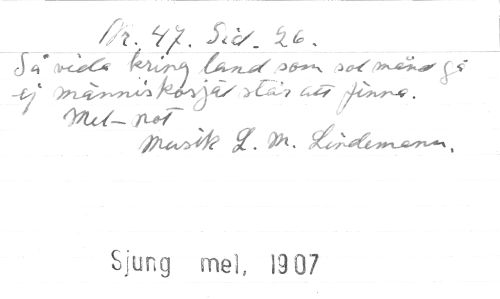 Nr. 47. Sid. 26.
Så vida kring land som sol månd gå
ej människosjäl står att finna.
Mel-not
Musik L. M. Lindemann.
Sjung mel, 1907